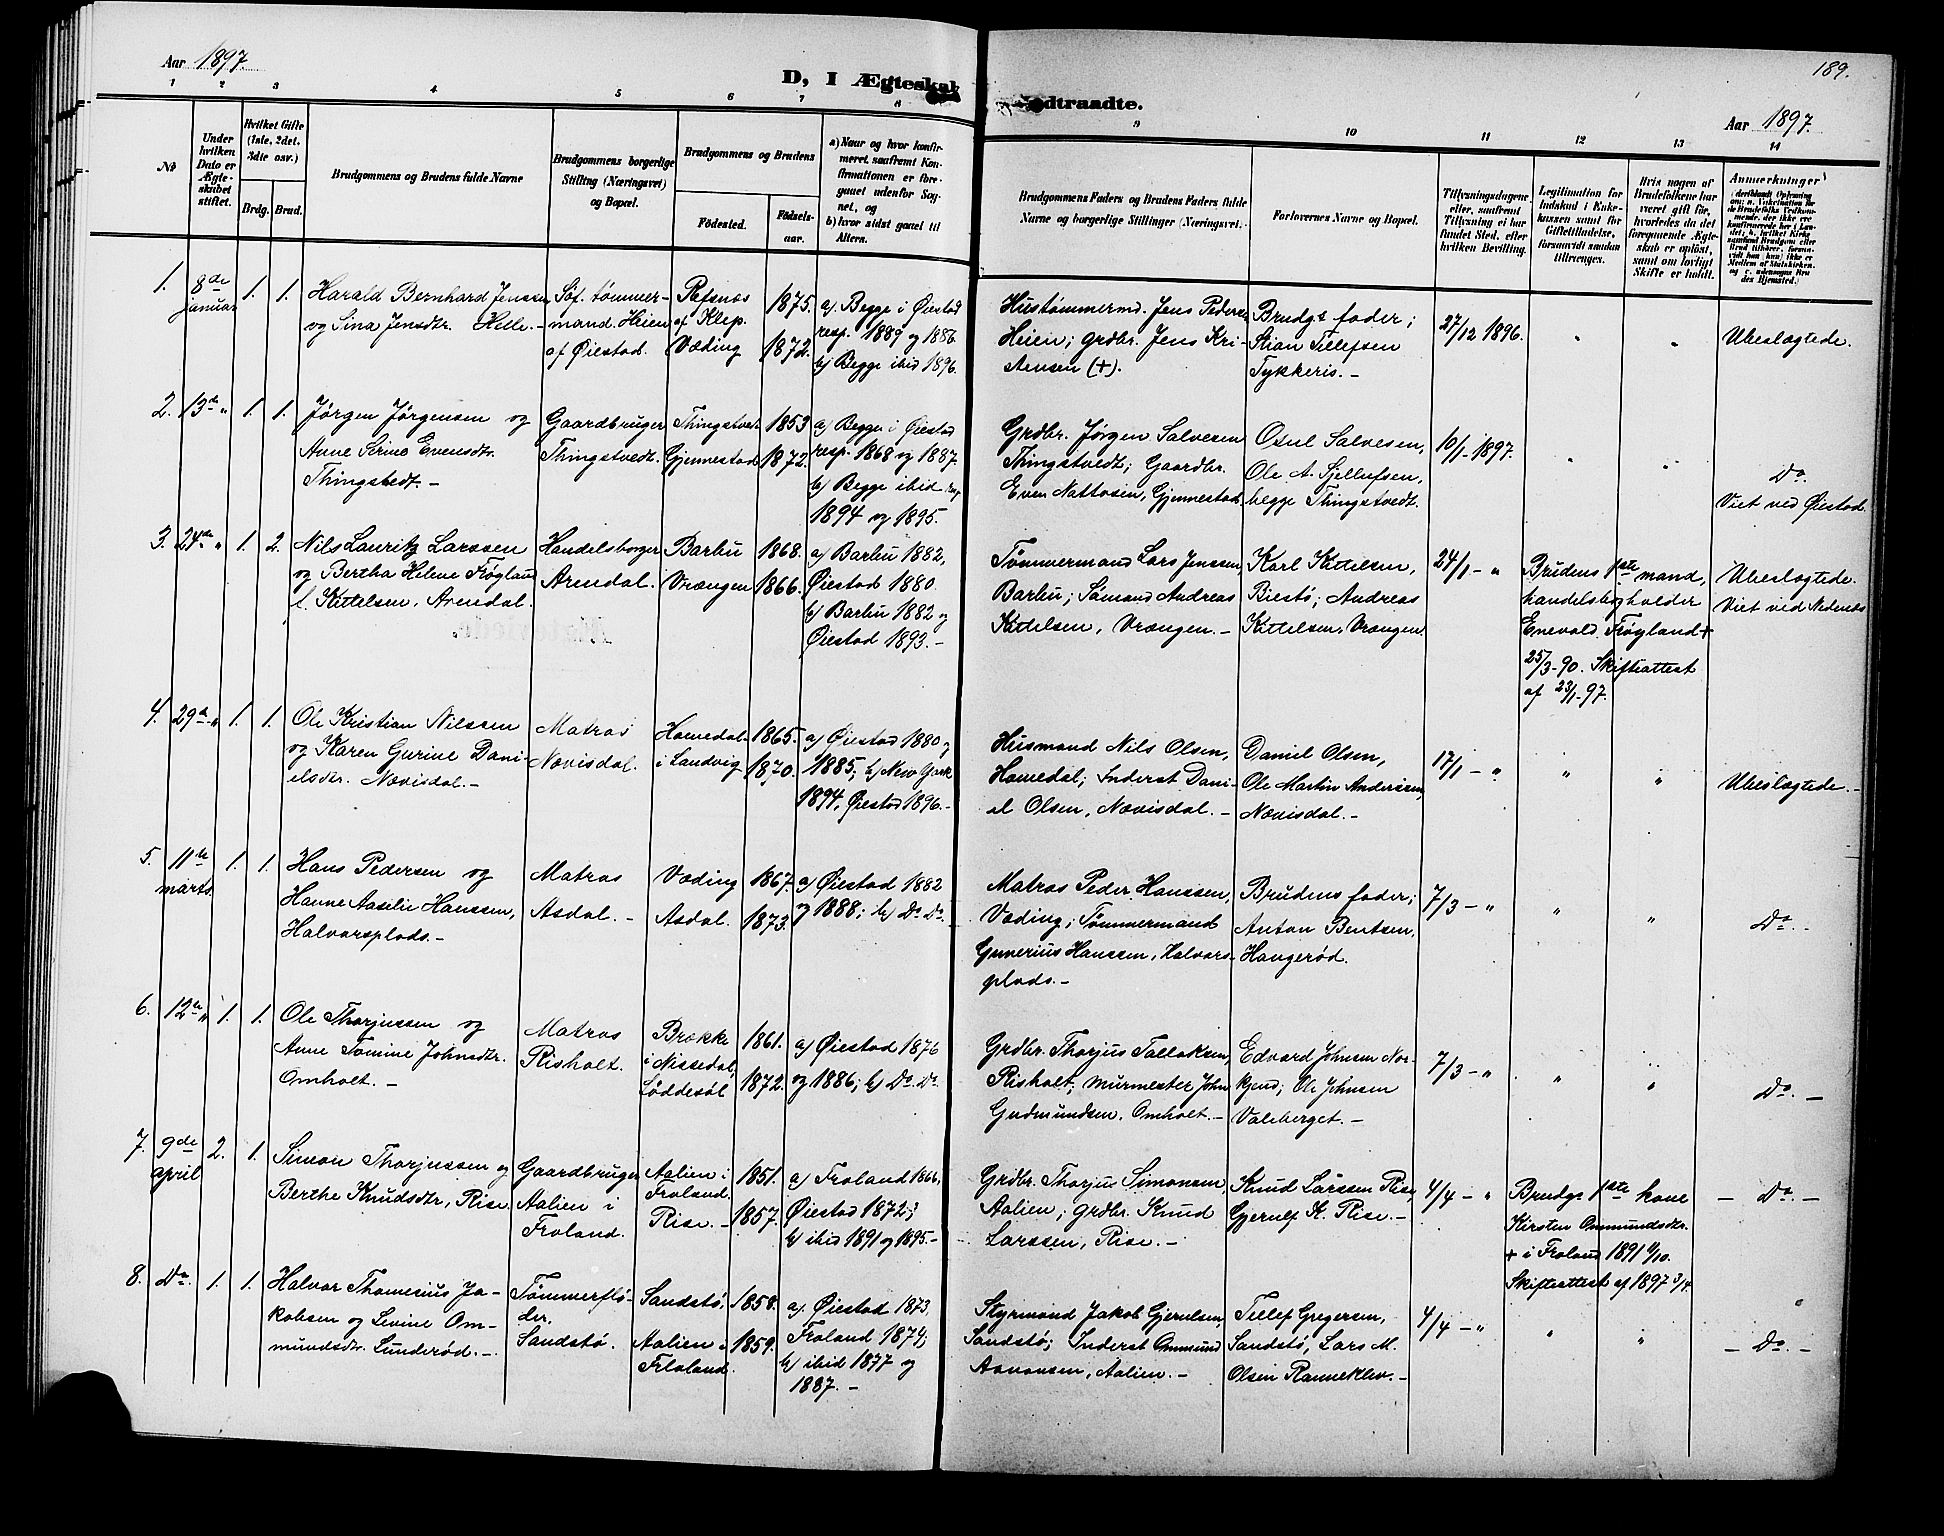 Aar 1897.
D, I Ægteska
dtraadte.
189.
Aar 1897.
1 2 3 4 5 6 7 8 9 10 11 12 13 14
No
Under hvilken Dato er Ægteskabet stiftet.
Hvilket Gifte (1ste, 2det, 3die osv.)
Brdg. Brud.
Brudgommens og Brudens fulde Navne
Brudgommens borgerlige Stilling (Næringsvei) og Bopæl.
Brudgommens og Brudens
Födested.
Födsels-aar.
a) Naar og hvor konfirmeret, saafremt Konfirmationen er foregaaet udenfor Sognet, og
b) hvor sidst gaaet til Alters.
Brudgommens Faders og Brudens Faders fulde Navne og borgerlige Stillinger (Næringsvei).
Forlovernes Navne og Bopæl.
Tillysningsdagene eller, saafremt Tillysning ei har fundet Sted, efter hvilken Bevilling.
Legitimation for Indskud i Enkekassen samt for Giftetilladelse, forsaavidt saadan tiltrænges.
Hvis nogen af Brudefolkene har været gift för, hvorledes da det foregaaende Ægteskab er oplöst, samt om lovligt Skifte er holdt.
Anmærkninger
1. 8de januar 1. 1.
Harald Bernhard Jenssen
og Sina Jensdtr. Helle.-
Söf. tömmer-
mand. Heien
af Øiestad.
Refsnæs
af Klep.
Væding
1875.
1872.
a) Begge i Øiestad
resp. 1889 og 1886.
b) Begge ibid 1896.
Hustömmermd. Jens Pedersen
Heien; grdbr. Jens Kri-
stensen (+).
Brudgs fader;
Stian Tellefsen
Tykkeris.-
27/12 1896.
" "
Ubeslægtede.
2. 13de " 1. 1.
Jørgen Jørgensen og
Anne Serine Evensdtr.
Thingstedt.-
Gaardbruger
Thingstvedt.
Thingstvet.
Gjennestad
1853
1872.
a) Begge i Øiestad
resp. 1868 og 1887.
b) Begge ibid resp
1894 og 1895.
Grdbr. Jørgen Salvesen
Thingstvedt; Gaardbr.
Even Nattosin, Gjennestad.
Osul Salvesen,
Ole A. Sjellufsen,
begge Thingstvedt.
10/1-1897.
" "
Do.
Viet ved Øiestad.
3. 24de " 1. 2.
Nils Lauritz Larssen
og Bertha Helene Frøgland
f. Kittelsen, Arendal.
Handelsborger
Arendal.
Barbu
Vrængen
1868.
1866.
a) Barbu 1882,
Øiestad 1880
b) Barbu 1882 og
Øiestad 1893.-
Tömmermand Lars Jenssen,
Barbu; Sømand Andreas
Kittelsen, Vrængen.-
Karl Kittelsen,
Biestø; Andreas
Kittelsen, Vrængen.
24/1- "
Brudens 1ste mand,
handelsbogholder
Enevold Frøyland +
25/3-90. Skifteattest
af 23/1-97.
Ubeslægtede.
Viet ved Nedenes
4. 29de " 1. 1.
Ole Kristian Nilssen
og Karen Gurine Dani-
elsdtr. Nævisdal.-
Matros
Nævisdal.
Homedal
i Landvig
1865.
1870.
a) Øiestad 1880 og
1885, b) New York
1894, Øiestad 1896.-
Husmand Nils Olsen,
Homedal; Inderst Dani-
el Olsen, Nævisdal.-
Daniel Olsen,
Ole Martin Anderssen,
Nævisdal.-
17/1- "
" "
Ubeslægtede.-
5. 11te marts 1. 1.
Hans Pedersen og
Hanne Aaselie Hanssen,
Halvorsplads.-
Matros
Asdal.-
Væding
Asdal.
1867.
1873.
a) Øiestad 1882
og 1888; b) Do. Do.
Matros Peder Hanssen,
Væding; Tømmermand
Gunerius Hanssen, Halvors-
plads.-
Brudens fader;
Anton Bentsen,
Haugerød.
7/3- "
" "
Do.-
6. 12te " 1. 1.
Ole Thorjussen og
Anne Tomine Johnsdtr.
Omholt.-
Matros
Risholt.
Brække
i Nissedal,
Løddesøl
1861.
1872.
a) Øiestad 1876
og 1886; b) Do. Do.
Grdbr. Thorjus Tallaksen,
Risholt; murmester John
Gudmundsen, Omholt.-
Edvard Johnsen Nor-
kjend; Ole Johnsen
Valeberget.-
7/3- "
" "
Do.-
7. 9de april 2. 1.
Simon Thorjussen og
Berthe Knudsdtr, Rise
Gaardbruger
Aalien i
Froland.
Aalien i
Froland.
Rise.-
1851.
1857.
a) Froland 1866,
Øiestad 1872;
b) ibid 1891 og 1895.-
Grdbr. Thorjus Simonsen,
Aalien; grdbr. Knud
Larssen, Rise.-
Knud Larssen Rise,
Gjerulf K. Rise.-
4/4- "
Brudgs 1ste kone
Kirsten Ommundsdtr.
+ i Froland 1891 4/10.
Skifteattest af 1897 3/4.
- Do-
8. Do. 1. 1.
Halvor Thomesius Ja-
kobsen og Levine Om-
mundsdtr. Lunderød.-
Tømmerflö-
der.
Sandstø.
Sandstø.
Aalien i
Froland.
1858.
1859.
a) Øiestad 1873,
Froland 1874;
b) ibid 1877 og
1887.-
Styrmand Jakob Gjerulsen,
Sandstø; Inderst Ommund
Aanonsen, Aalien.-
Tellef Gregersen,
Sandstø, Lars M.
Olsen Ranneklev.-
4/4- "
" "
- Do.-